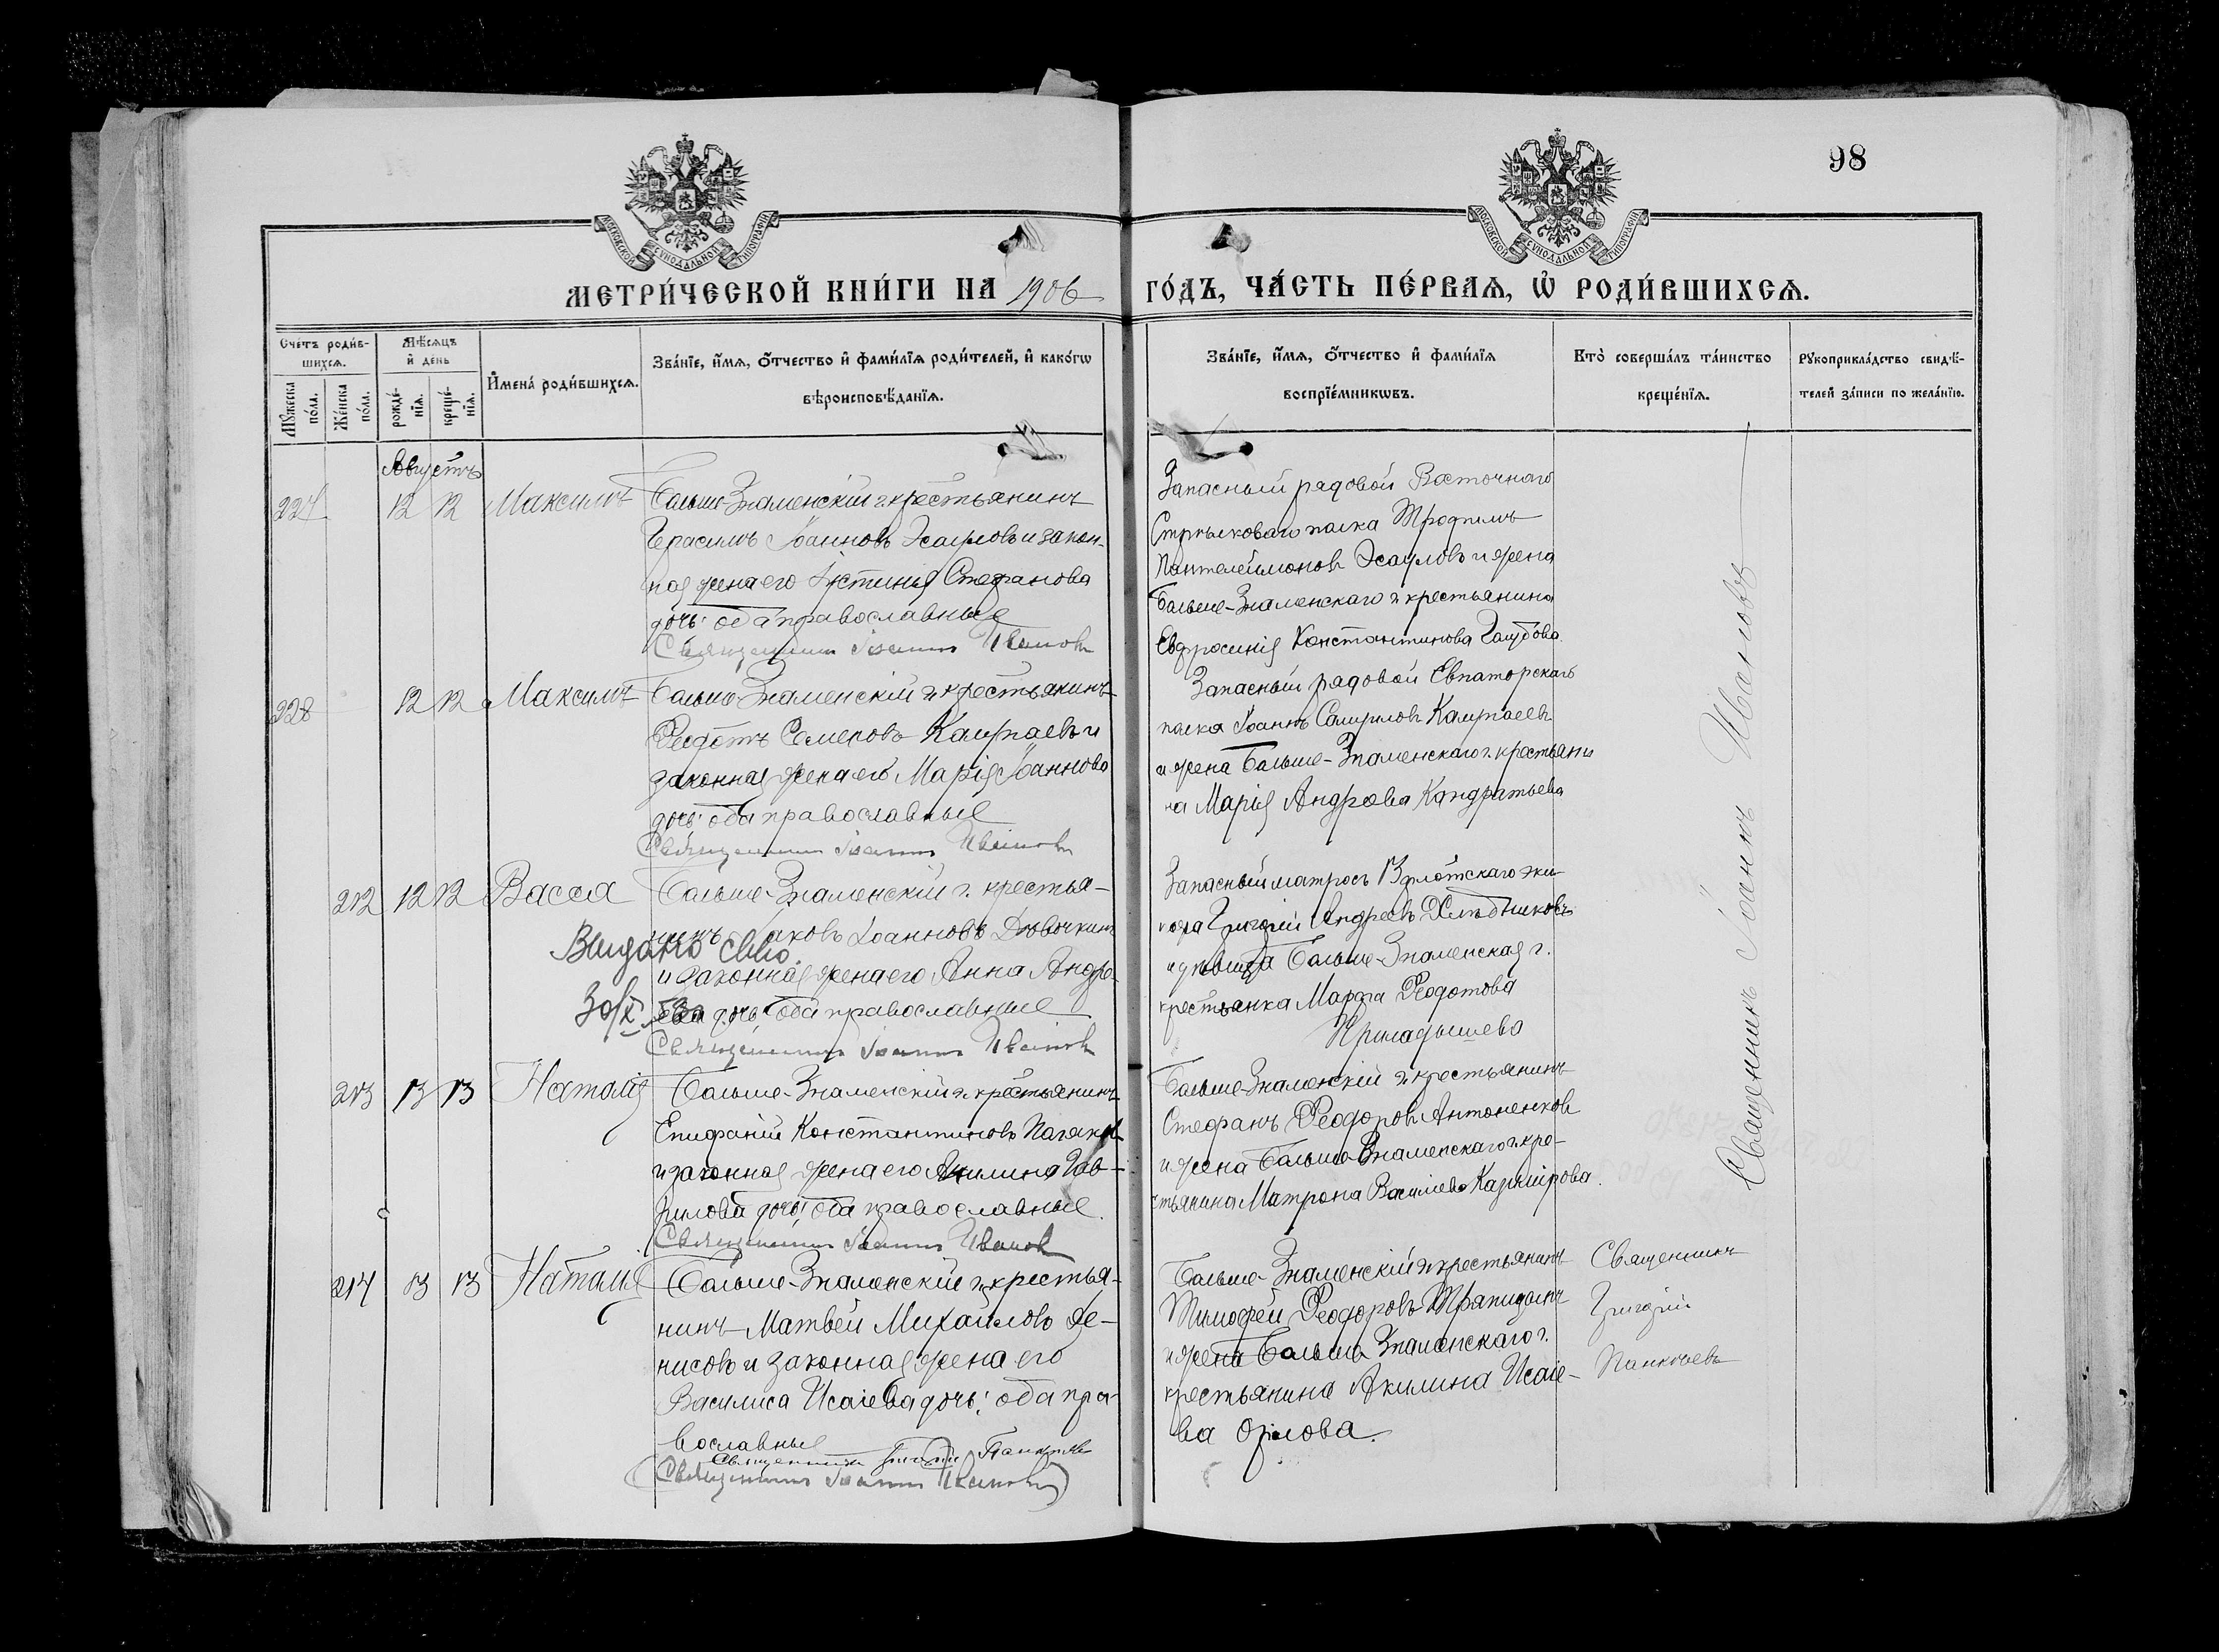 98
МОСКОВСКОЙ СѴНОДАЛЬНОЙ ТИПОГРАФІИ
МОСКОВСКОЙ СѴНОДАЛЬНОЙ ТИПОГРАФІИ
МЕТРИ́ЧЕСКОЙ КНИ́ГИ НА 1906 ГО́ДЪ, ЧА́СТЬ ПЕ́РВАѦ, Ѡ҆ РОДИ́ВШИХСѦ.
Сче́тъ роди́в-
шихсѧ.
Мꙋжеска по́ла.
Же́нска по́ла.
Мѣ́сѧцъ
и҆ де́нь
рожде́-
нїѧ.
креще́-
нїѧ.
И҆мена̀ роди́вшихсѧ.
Зва́нїе, и҆́мѧ, ѻ҆́тчество и҆ фами́лїѧ роди́телей, и҆ како́гѡ
вѣроисповѣ́данїѧ.
Зва́нїе, и҆́мѧ, ѻ҆́тчество и҆ фами́лїѧ
воспрїе́мникѡвъ.
Кто̀ соверша́лъ та́инство
креще́нїѧ.
Рꙋкоприкла́дство свидѣ́-
телей за́писи по жела́нїю.
Августъ
227 12 12 Максимъ
Больше-Знаменскій г. крестьянинъ
Герасимъ Іоанновъ Эсауловъ и закон-
ная жена его Іустинія Стефанова
дочь: оба православные
Священникъ Іоаннъ Ивановъ
Запасный рядовой Восточнаго
Стрѣлковаго полка Трофимъ
Пантелеимоновъ Эсауловъ и жена
Больше-Знаменскаго г. крестьянина
Евфросинія Константинова Голубова.
228 12 12 Максимъ
Больше-Знаменскій г. крестьянинъ
Ѳеодотъ и
законная жена его Марія Іоаннова
дочь: оба православные
Священникъ Іоаннъ Ивановъ
Запасный рядовой Евпаторскаго
полка Іоаннъ
и жена Больше-Знаменскаго г. крестьяни
на Марія Андреева Кандратьева
212 12 12 Васса
Больше-Знаменскій г. крестья-
нинъ Іаковъ Іоанновъ
и законная жена его Анна Андре-
ева дочь: оба православные
Священникъ Іоаннъ Ивановъ
Видано свію.
30/X
Запасный матросъ 13 флотскаго эки-
пажа Григорій Андреевъ Хлѣбниковъ
и дѣвица Больше-Знаменская г.
крестьянка Марфа Ѳеодотова
213 13 13 Наталія
Больше-Знаменскій г. крестьянинъ
Епифаній Константиновъ
и законная жена его Акилина Гав-
рилова дочь: оба православные.
Священникъ Іоаннъ Ивановъ
Больше-Знаменскій г. крестьянинъ
Стефанъ Ѳеодоровъ Антоненковъ
и жена Больше-Знаменскаго г. кре-
стьянина Матрона Василіева Казмирова.
Священникъ Іоаннъ Ивановъ
214 13 13 Наталія
Больше-Знаменскій г. крестья-
нинъ Матвей Михайловъ Де-
нисовъ и законная жена его
Василиса Исаіева дочь: оба пра-
вославные
Священникъ Григорій Панкѣевъ
(Священникъ Іоаннъ Ивановъ)
Больше-Знаменскій г. крестьянинъ
Тимофей Ѳеодоровъ
и жена Больше Знаменскаго г.
крестьянина Акилина Исаіе-
ва Орлова.
Священникъ
Григорій
Панкѣевъ